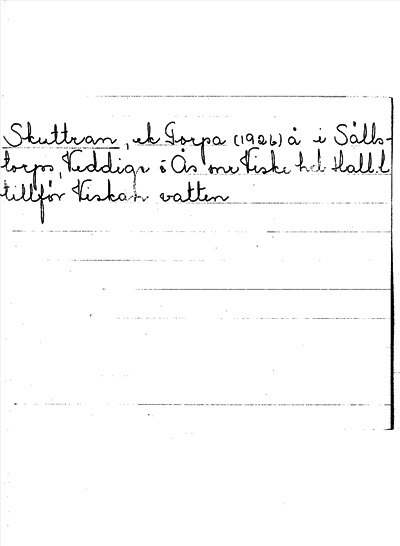 Skuttran, ek Torpa (1926) å i Sälls-
torps, Veddige o Ås snr Viske hd Hall. l
tillför Viskan vatten